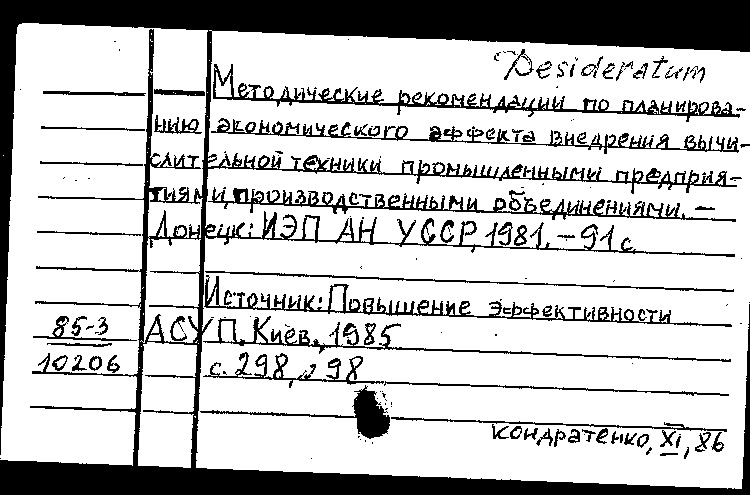 Desideratum
Методические рекомендации по планирова-
нию экономического эффекта внедрения вычи-
слительной техники промышленными предприя-
тиями, производственными объединениями. —
Донецк: ИЭП АН УССР, 1981. — 91 с.
Источник: Повышение эффективности
85-3 АСУП. Киев., 1985
10206 с. 298, 298
Кондратенко, XI, 86